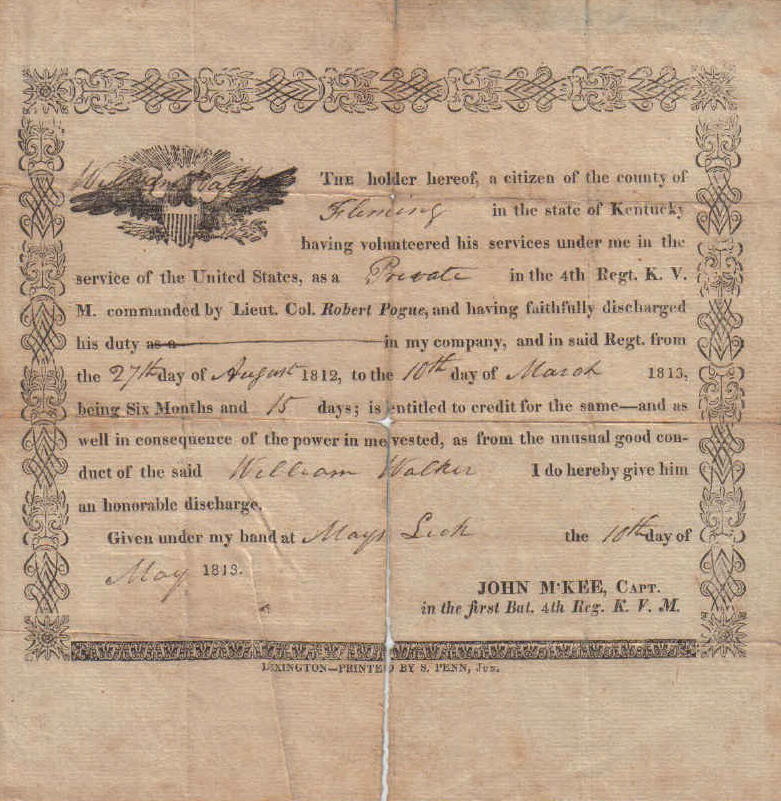 William Walker
THE holder hereof, a citizen of the county of
Fleming in the state of Kentucky
having volunteered his services under me in the
service of the United States, as a Private in the 4th Regt. K. V.
M. commanded by Lieut. Col. Robert Pogue, and having faithfully discharged
his duty as a in my company, and in said Regt. from
the 27th day of August 1812, to the 10th day of March 1813,
being Six Months and 15 days; is entitled to credit for the same—and as
well in consequence of the power in me vested, as from the unusual good con-
duct of the said William Walker I do hereby give him
an honorable discharge.
Given under my hand at Mays Lick the 10th day of
May 1813.
JOHN M'KEE, CAPT.
in the first Bat. 4th Reg. K. V. M.
LEXINGTON—PRINTED BY S. PENN, JUN.